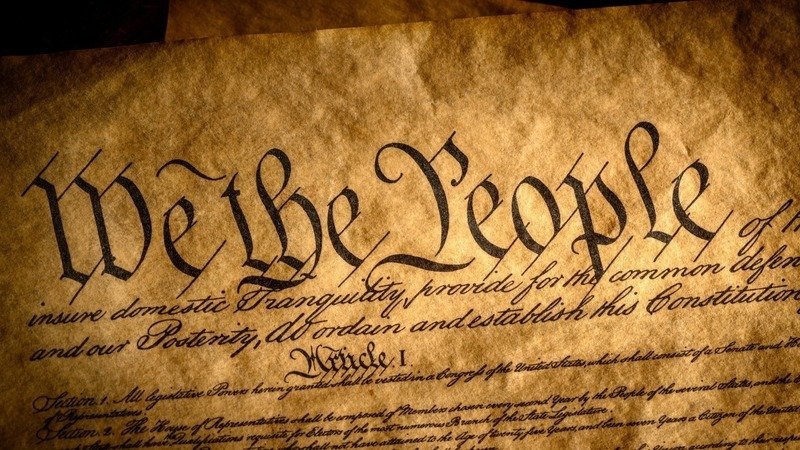 We the People of
insure domestic Tranquility, provide for the common defen
and our Posterity, do ordain and establish this Constitution
Article. I.
Section. 1. All legislative Powers herein granted shall be vested in a Congress of the United States, which shall consist of a Senate and
of Representatives
Section. 2. The House of Representatives shall be composed of Members chosen every second Year by the People of the several States, and the
shall have Qualifications requisite for Electors of the most numerous Branch of the State Legislature.
shall not have attained to the Age of twenty five Years, and been seven Years a Citizen of the United
according to their